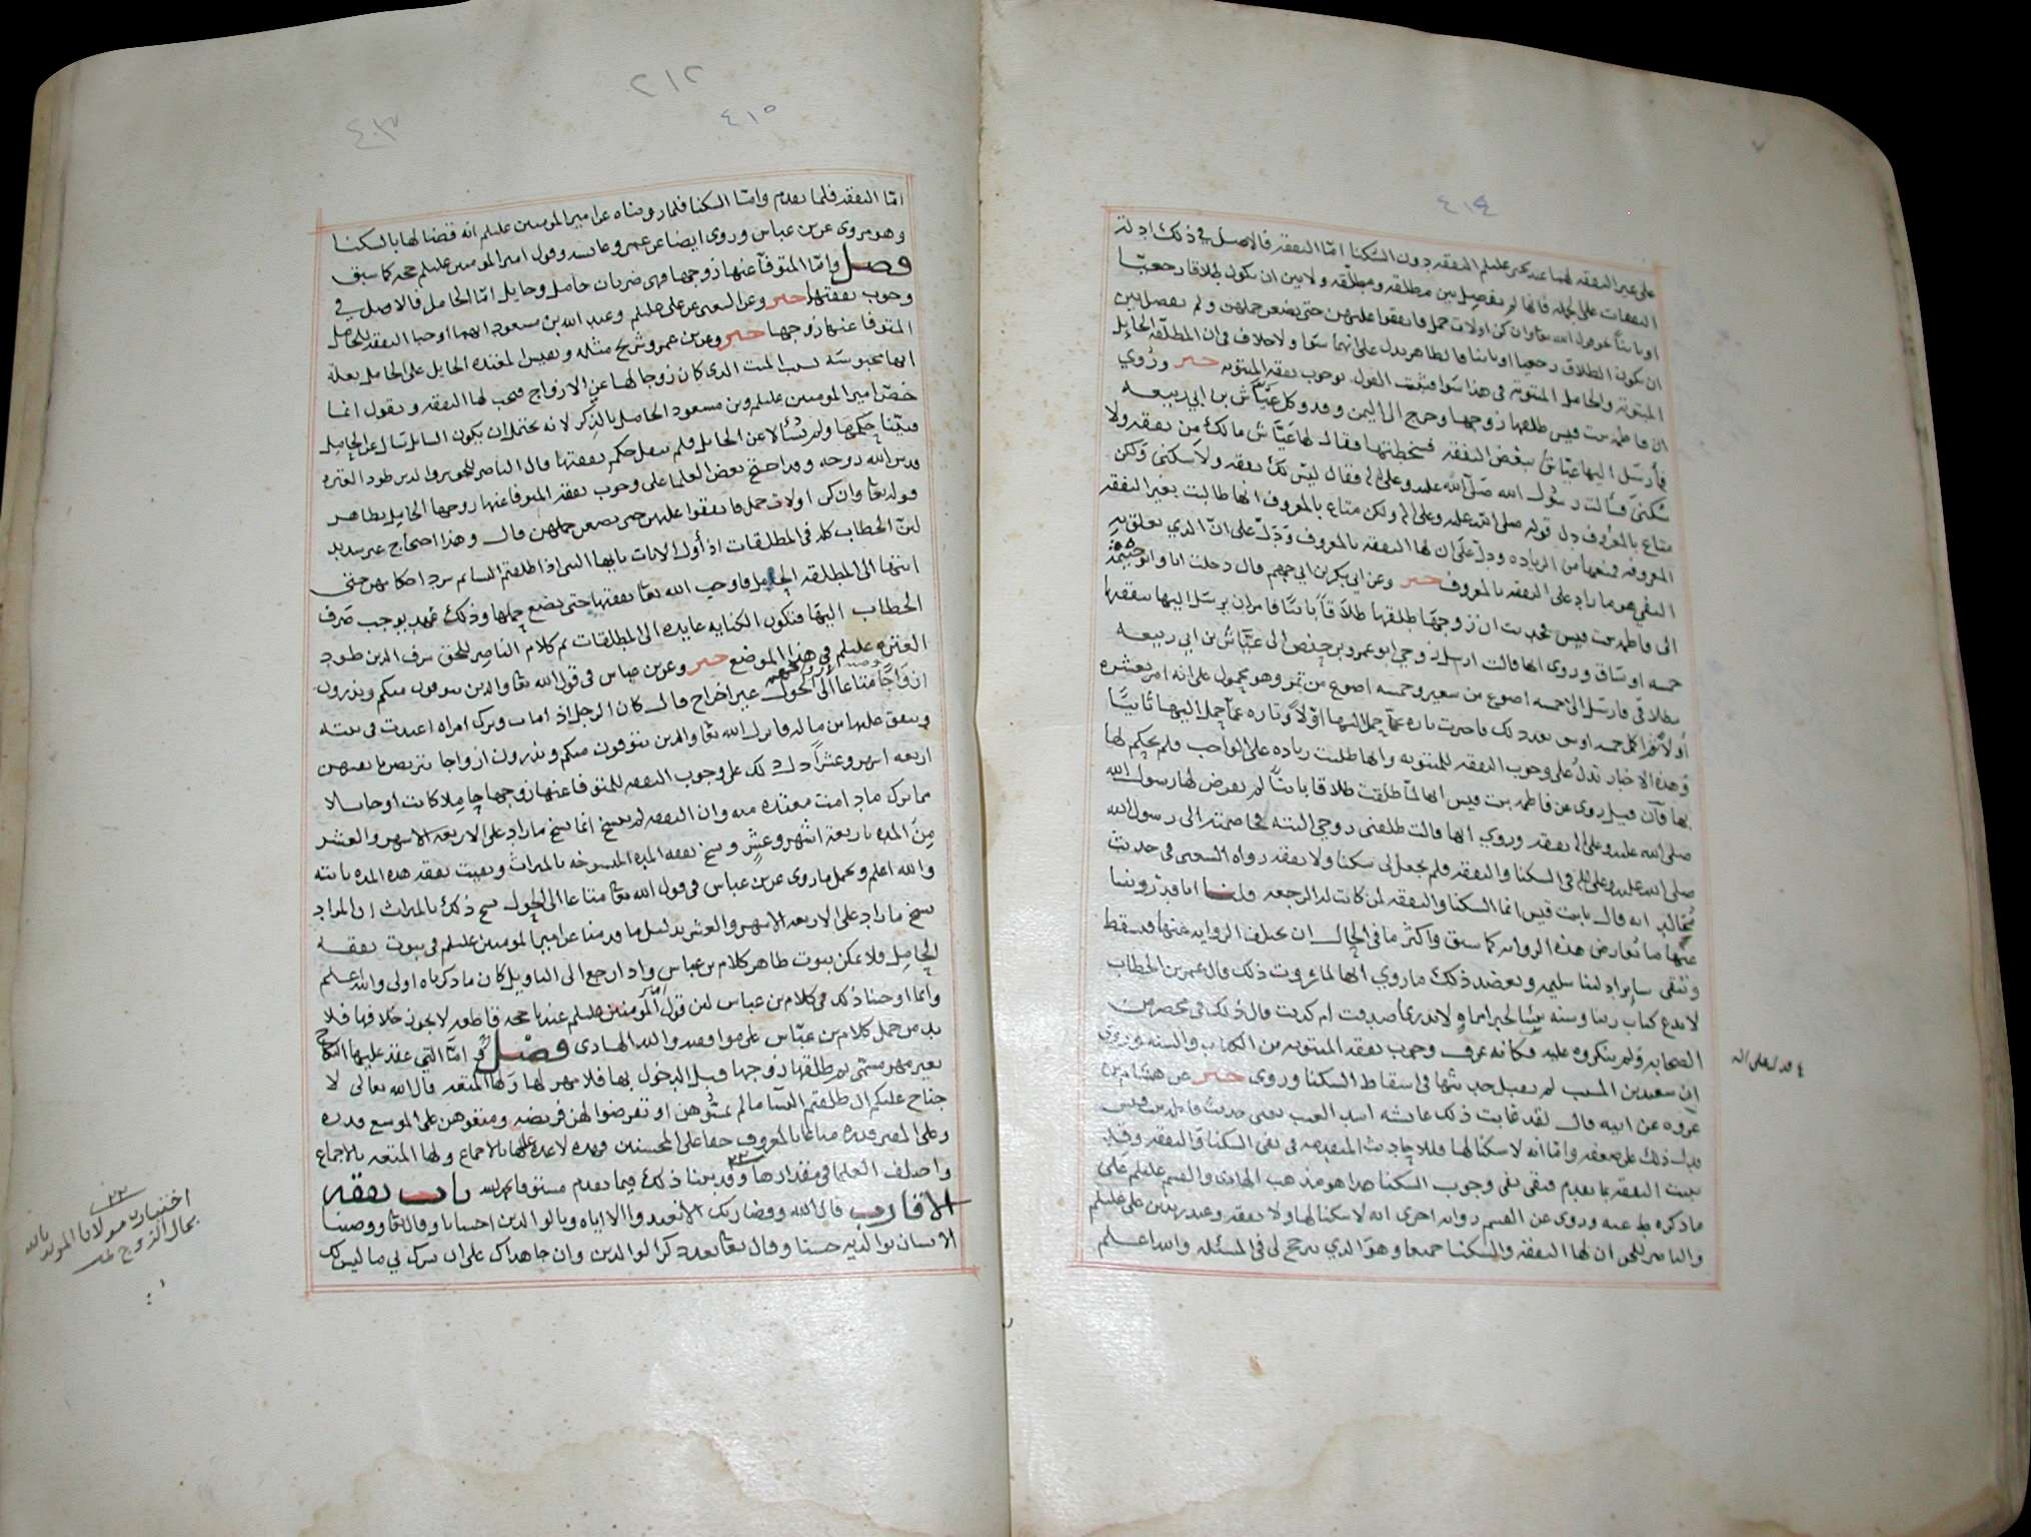 ٤١٤
على غير النفقه لهما عند يحيى عليلم النفقه دون السكنا امّا النفقه فالاصل في ذلك ادلة
النفقات على الجمله فانها لم تفصل بين مطلقه ومطلّقه ولا بين ان يكون طلاقا رجعيّا
او باينا نحو قول الله تعا وان كن اولات حمل فانفقوا عليهن حتى يضعن حملهن ولم يفصل بين
ان يكون الطلاق رجعيا او باينا فالظاهر يدل على انهما سوا ولا خلاف في ان المطلقه الحايل
المبتوتة والحامل المبتوتة في هذا سوا فثبت القول بوجوب نفقه المبتوته خبر ورُوي
ان فاطمه بنت قيس طلقها زوجها وخرج الى اليمن وقد وكل عيّاش بن ابي ربيعه
فأرسل اليها عيّاش ببعض النفقه فسخطتها فقال لها عيّاش مالك من نفقه ولا
سُكنى فسألت رسول الله صلى الله عليه وعلى اله فقال ليس لك نفقه ولا سكنى ولكن
متاع بالمعروف دل قوله صلى الله عليه وعلى اله ولكن متاع بالمعروف انها طالبت بغير النفقه
المعروفه فمنعها من الزياده ودل على ان لها النفقه بالمعروف ودَلّ على انّ الذي تعلق به
النفي هو ما زاد على النفقه بالمعروف خبر وعن ابي بكر بن ابي جهم قال دخلت انا وابو سلمة
الى فاطمه بنت قيس فحدثت ان زوجها طلقها طلاقاً باينا فامر ان يرسل اليها بنفقتها
خمسه اوساق وروي انها قالت ارسل زوجي ابو عمرو بن حفص الى عيّاش بن ابي ربيعه
بطلاقي فارسل الى خمسه اصوع من شعير وخمسه اصوع من تمر وهو محمول على انه امر بعشره
اولا ثم اكمل خمسه اوسق بعد ذلك فاخبرت تاره عمّا حمل اليها اوّلاً وتاره عمّا حمل اليها ثانيّا
وهذه الاخبار تدل على وجوب النفقه للمبتوته وانها طلبت زياده على الواجب فلم يحكم لها
بها فان قيل روى عن فاطمه بنت قيس انها لمّا طلقت طلاقا باينا لم يفرض لها رسول الله
صلى الله عليه وعلى اله نفقه وروي انها قالت طلقنى زوجي البته فخاصمته الى رسول الله
صلى الله عليه وعلى اله في السكنا والنفقه فلم يجعل لى سكنا ولا نفقه رواه الشعبى في حديث
انه قال يابنت قيس انما السكنا والنفقه لمن كانت له الرجعه قلنا انا قد روينا
عنها ما تعارض هذه الروايه كما سبق واكثر ما في الحال ان تختلف الروايه عنها فتسقط
وتبقى ساير ادلتنا سليمه ويعضد ذلك ما روي انها لما روت ذلك قال عمر بن الخطاب
لا ندع كتاب ربنا وسنه نبينا لخبر امراه لا ندرى أصدقت ام كذبت قال ذلك في محضر من
الصحابه ولم ينكروه عليه فكانه عرف وجوب نفقه المبتوته من الكتاب والسنه وروي
ان سعيد بن المسيب لم يقبل حديثها في اسقاط السكنا وروى خبر عن هشام بن
عروه عن ابيه قال لقد عابت ذلك عائشه اشد العيب يعنى حديث فاطمه بنت قيس
فدل ذلك على ضعفه وامّا انه لا سكنا لها فللاحاديث المتقدمه في نفى السكنا والنفقه وقد
ثبتت النفقه بما تقدم فبقى نفى وجوب السكنا هذا هو مذهب الهادى والقسم عليلم على
ما ذكره ط عنه وروى عن القسم روايه اخرى انه لا سكنا لها ولا نفقه وعند زيد بن على عليلم
والناصر للحق ان لها النفقه والسكنا جميعا وهو الذي ترجح لي في المسئله والله اعلم
٢١٢
٤١٥
٤٠٣
امّا النفقه فلما تقدم وامّا السكنا فلما رويناه عن امير المومنين عليلم انه قضا لها بالسكنا
وهو مروى عن بن عباس وروى ايضا عن عمر وعائشه وقول امير المومنين عليلم حجه كما سبق
فصل وامّا المتوفّا عنها زوجها فهى ضربان حامل وحايل امّا الحامل فالاصل في
وجوب نفقتها خبر وعن الشعبى عن على عليلم وعبد الله بن مسعود انهما اوجبا النفقه للحامل
المتوفا عنها زوجها خبر وعن بن عمر وشريح مثله ونقيس المعتده الحايل على الحامل بعله
انها محبوسه بسبب الميت الذى كان زوجا لها عن الازواج فتجب لها النفقه ونقول انما
خصّ امير المومنين عليلم وبن مسعود الحامل بالذِكر لانه يحتمل ان يكون السايل سَال عن الحامل
فبيّنا حكمها ولم يُسئلا عن الحايل فلم ينقل حكم نفقتها قال الناصر للحق شرف الدين طود العتره
قدس الله روحه وقد احتج بعض العلما على وجوب نفقه المتوفا عنها زوجها الحايل بظاهر
قوله تعا وان كن اولات حمل فانفقوا عليهن حتى يضعن حملهن قال وهذا احتجاج غير سديد
لانّ الخطاب كله في المطلقات اذ أول الايات يا ايها النبى اذا طلقتم النسا ثم سرد احكامهن حتى
انتها الى المطلقه الحامل فاوجب الله تعا نفقتها حتى تضع حملها وذلك عهد يوجب صَرف
الخطاب اليها فتكون الكنايه عايده الى المطلقات تم كلام الناصر للحق شرف الدين طود
العتره عليلم في هذا الموضع خبر وعن بن عباس في قول الله تعا والذين يتوفون منكم ويذرون
ازواجا وصيه لازواجهم متاعا الى الحول غير اخراج قال كان الرجل اذا مات وترك امراه اعتدت في بيته
وينفق عليها من ماله فانزل الله تعا والذين يتوفون منكم ويذرون ازواجا يتربصن بانفسهن
اربعه اشهر وعشراً دل ذلك على وجوب النفقه للمتوفا عنها زوجها حاملا كانت او حايلا
مما ترك مادامت معتده منه وان النفقه لم تنسخ انما نسخ ما زاد على الاربعه الاشهر والعشر
مِنَ المده باربعة اشهر وعشرٍ ونسخ نفقه المده المنسوخه بالميراث وبقيت نفقه هذه المده ثابته
والله اعلم ويحمل ما روى عن بن عباس في قول الله تعا متاعا الى الحول نسخ ذلك بالميراث ان المراد
نسخ ما زاد على الاربعه الاشهر والعشر بدليل ما قدمنا عن امير المومنين عليلم في ثبوت نفقه
الحامِل ولا يمكن ثبوت ظاهر كلام بن عباس واذا رجع الى التاويل كان ما ذكرناه اولى والله اعلم
وانما اوجبنا ذلك في كلام بن عباس لان قول امير المومنين عليلم عندنا حجه قاطعه لا يجوز خلافها فلا
بد من حمل كلام بن عبّاس على موافقته والله الهادى فصل في امّا التي عقد عليها النكاح
بغير مهر مسمّى ثم طلقها زوجها قبل الدخول بها فلا مهر لها ولها المتعه قال الله تعالى لا
جناح عليكم ان طلقتم النسا ما لم تمسّوهن او تفرضوا لهن فريضه ومتعوهن على الموسع قدره
وعلى المقتر قدره متاعا بالمعروف حقا على المحسنين وهذه لا عده عليها بالاجماع ولها المتعه بالاجماع
واختلف العلما في مقدارها وقد بينا ذلك فيما تقدم مستوفا بحمد الله باب نفقه
الاقارب قال الله وقضا ربك الا تعبدوا الا اياه وبالوالدين احسانا وقال تعا ووصينا
الانسان بوالديه حسنا وقال تعا بعد ذكر الوالدين وان جاهداك على ان تشرك بي ما ليس لك
اختيار مولانا المويد بالله
بحال الزوج